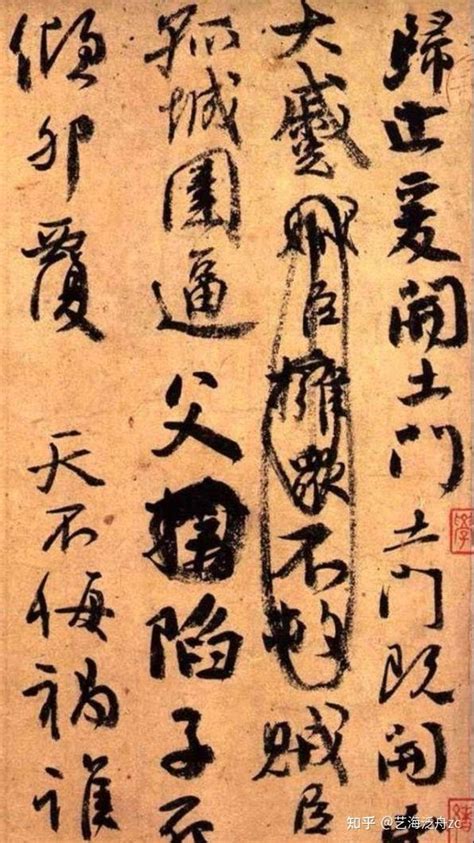 歸止爰開土門土門既開
大蹙賊臣擁衆不救賊臣
孤城圍逼父陷子死
傾卵覆 天不悔禍誰
知乎 @艺海泛舟zc